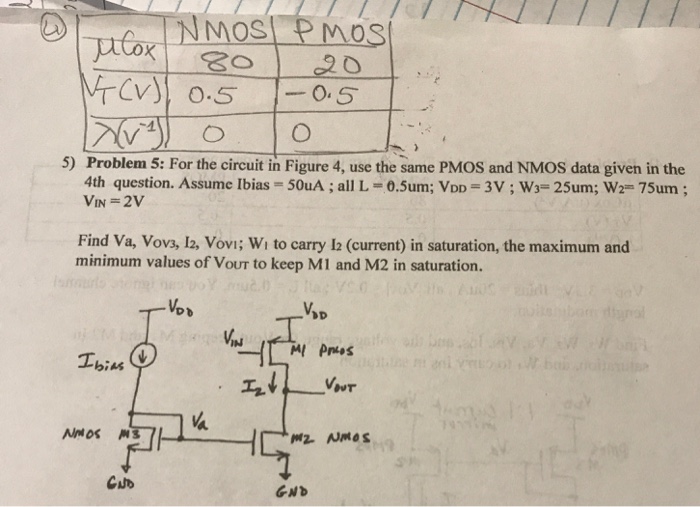 4)
NMOS PMOS
μCox 80 20
VT(V) 0.5 -0.5
λ(V⁻¹) 0 0
5) Problem 5: For the circuit in Figure 4, use the same PMOS and NMOS data given in the
4th question. Assume Ibias = 50uA ; all L = 0.5um; VDD = 3V ; W3= 25um; W2= 75um ;
VIN = 2V
Find Va, VOV3, I2, VOV1; W1 to carry I2 (current) in saturation, the maximum and
minimum values of VOUT to keep M1 and M2 in saturation.
VDD VDD
VIN
M1 PMOS
Ibias
I2 VOUT
Va
NMOS M3 M2 NMOS
GND GND